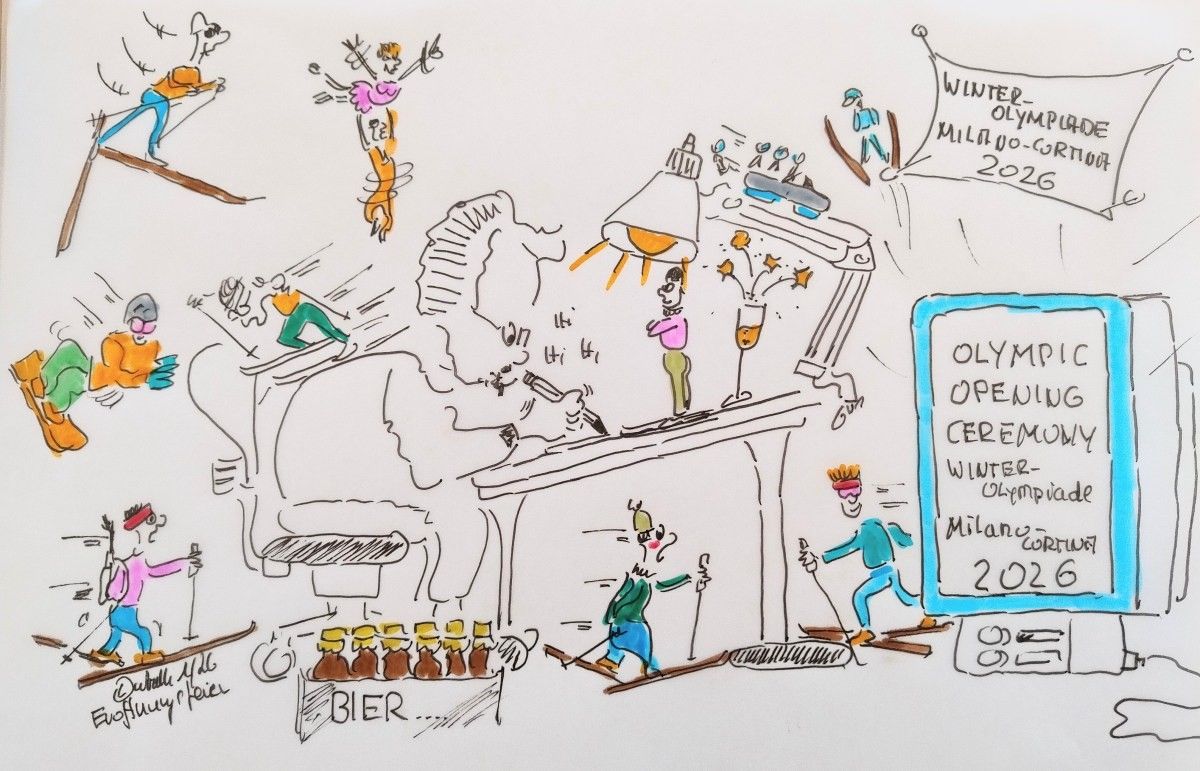 WINTER-
OLYMPIADE
MILANO-CORTINA
2026
Hi
Hi Hi
OLYMPIC
OPENING
CEREMONY
WINTER-
Olympiade
Milano-
CORTINA
2026
BIER....
Eröffnungsfeier